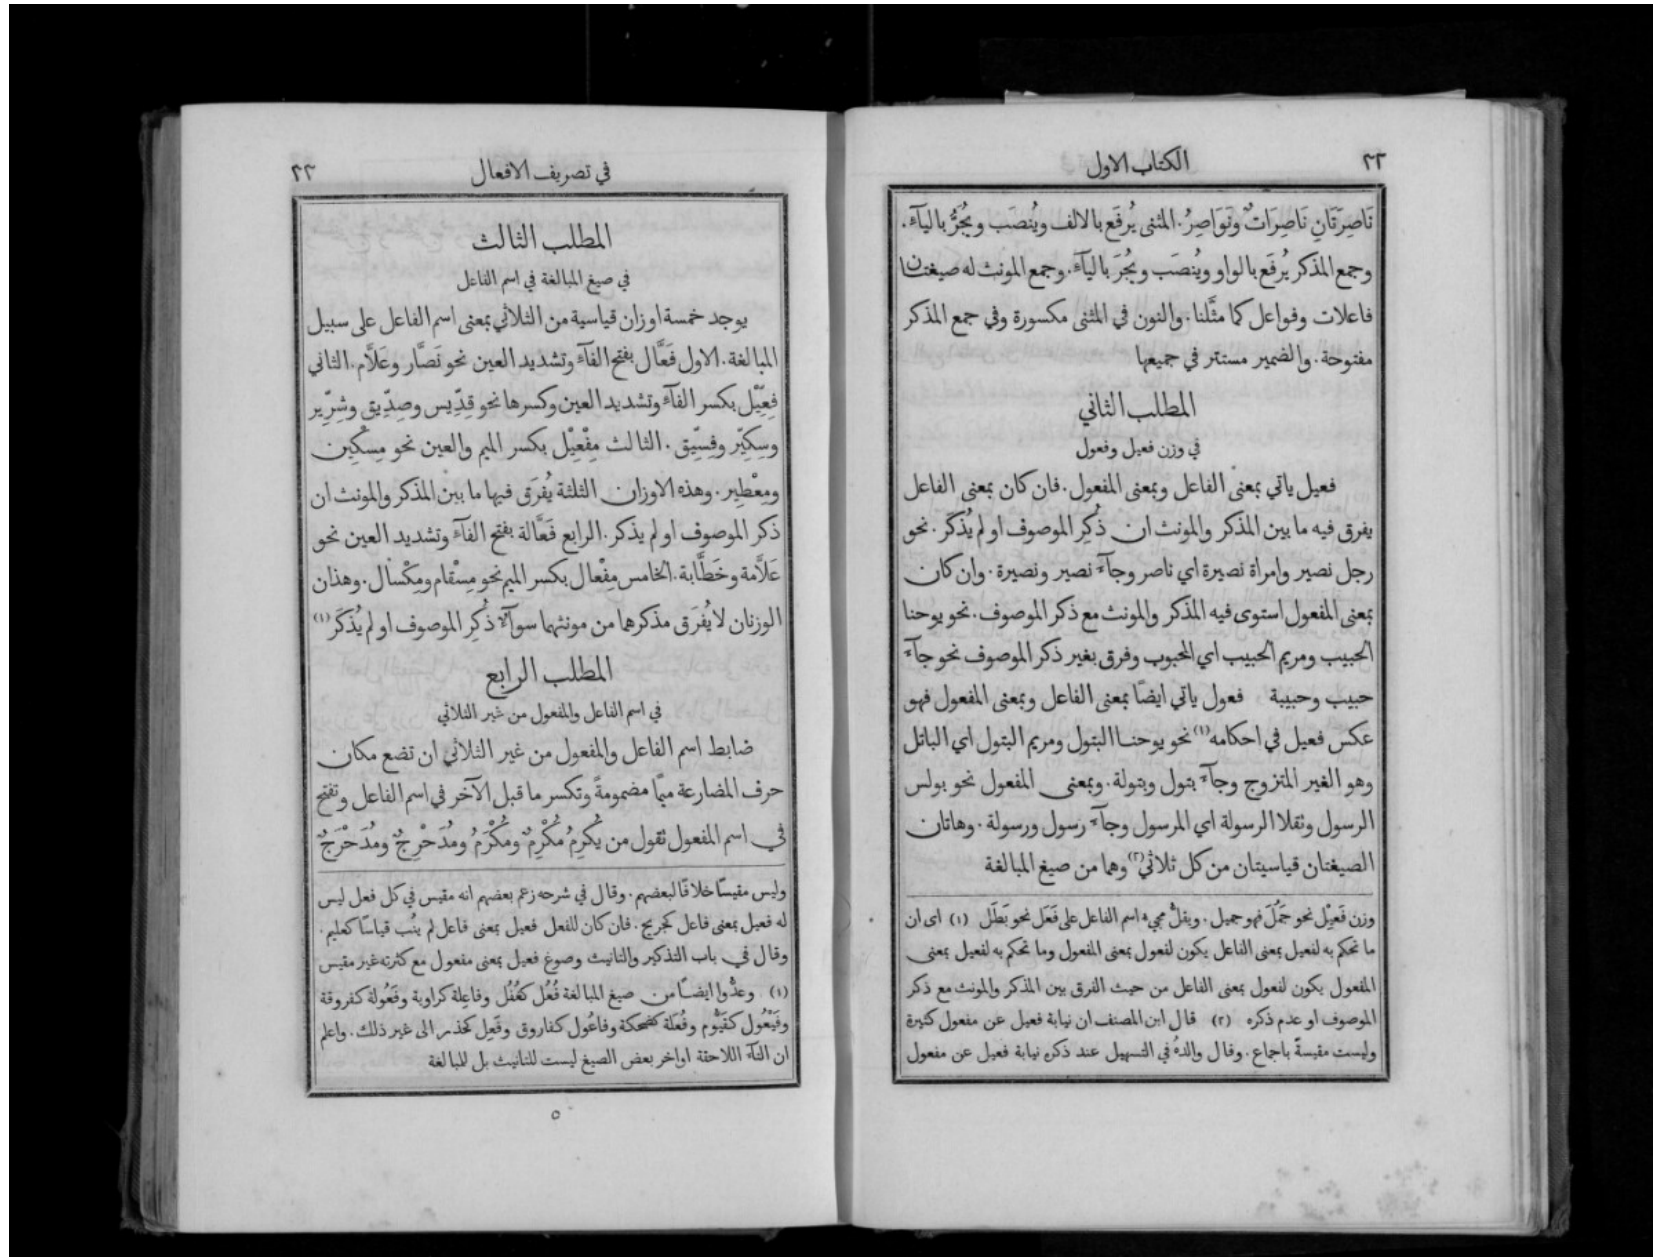 ٣٢
الكتاب الاول
نَاصِرَتَانِ نَاصِرَاتٌ ونَوَاصِرُ. المثنى يُرفَع بالالف ويُنصَب ويُجَرُّ باليآءِ.
وجمع المذكر يُرفَع بالواو ويُنصَب ويُجَرّ باليآءِ. وجمع المونث له صيغتان
فاعلات وفواعل كما مثَّلنا. والنون في المثنى مكسورة وفي جمع المذكر
مفتوحة. والضمير مستتر في جميعها
المطلب الثاني
في وزن فعيل وفعول
فعيل ياتي بمعنى الفاعل وبمعنى المفعول. فان كان بمعنى الفاعل
يفرق فيه ما بين المذكر والمونث ان ذُكِر الموصوف او لم يُذكَر. نحو
رجل نصير وامراة نصيرة اي ناصر وجآءَ نصير ونصيرة. وان كان
بمعنى المفعول استوى فيه المذكر والمونث مع ذكر الموصوف. نحو يوحنا
الحبيب ومريم الحبيب اي المحبوب وفرق بغير ذكر الموصوف نحو جآءَ
حبيب وحبيبة فعول ياتي ايضًا بمعنى الفاعل وبمعنى المفعول فهو
عكس فعيل في احكامه(١) نحو يوحنا البتول ومريم البتول اي الباتل
وهو الغير المتزوج وجآءَ بتول وبتولة. وبمعنى المفعول نحو بولس
الرسول وثقلا الرسولة اي المرسول وجآءَ رسول ورسولة. وهاتان
الصيغتان قياسيتان من كل ثلاثي(٢) وهما من صيغ المبالغة
وزن فَعِيْل نحو جَمُلَ فهو جميل. ويقلُّ مجيء اسم الفاعل على فَعَل نحو بَطَل (١) اى ان
ما تحكم به لفعيل بمعنى الفاعل يكون لفعول بمعنى المفعول وما تحكم به لفعيل بمعنى
المفعول يكون لفعول بمعنى الفاعل من حيث الفرق بين المذكر والمونث مع ذكر
الموصوف او عدم ذكره (٢) قال ابن المصنف ان نيابة فعيل عن مفعول كثيرة
وليست مقيسةً باجماع. وقال والدهُ في التسهيل عند ذكره نيابة فعيل عن مفعول
في تصريف الافعال
٣٣
المطلب الثالث
في صيغ المبالغة في اسم الفاعل
يوجد خمسة اوزان قياسية من الثلاثي بمعنى اسم الفاعل على سبيل
المبالغة. الاول فَعَّال بفتح الفآءِ وتشديد العين نحو نَصَّار وعَلَّام. الثاني
فِعِّيْل بكسر الفآءِ وتشديد العين وكسرها نحو قِدِّيس وصِدِّيق وشِرِّير
وسِكِّير وفِسِّيق. الثالث مِفْعِيْل بكسر الميم والعين نحو مِسْكِين
ومِعْطِير. وهذه الاوزان الثلثة يُفرَق فيها ما بين المذكر والمونث ان
ذكر الموصوف او لم يذكر. الرابع فَعَّالة بفتح الفآءِ وتشديد العين نحو
عَلاَّمة وخَطَّابة. الخامس مِفْعال بكسر الميم نحو مِسْقام ومِكْسال. وهذان
الوزنان لا يُفرَق مذكرهما من مونثهما سوآءٌ ذُكِر الموصوف او لم يُذكَر(١)
المطلب الرابع
في اسم الفاعل والمفعول من غير الثلاثي
ضابط اسم الفاعل والمفعول من غير الثلاثي ان تضع مكان
حرف المضارعة ميمًا مضمومةً وتكسر ما قبل الآخر في اسم الفاعل وتفتح
في اسم المفعول تقول من يُكْرِمُ مُكْرِمٌ ومُكْرَمٌ ومُدَحْرِجٌ ومُدَحْرَجٌ
وليس مقيسًا خلافًا لبعضهم. وقال في شرحه زعم بعضهم انه مقيس في كل فعل ليس
له فعيل بمعنى فاعل كجريح. فان كان للفعل فعيل بمعنى فاعل لم ينُب قياسًا كعليم.
وقال في باب التذكير والتانيث وصوغ فعيل بمعنى مفعول مع كثرته غير مقيس
(١) وعدُّوا ايضًا من صيغ المبالغة فُعُل كغُفُل وفاعِلة كراوية وفَعُولة كفروقة
وفَيْعُول كقَيُّوم وفُعَلة كضحكة وفاعُول كفاروق وفَعِل كحذر الى غير ذلك. واعلم
ان التآءَ اللاحقة اواخر بعض الصيغ ليست للتانيث بل للمبالغة
٥